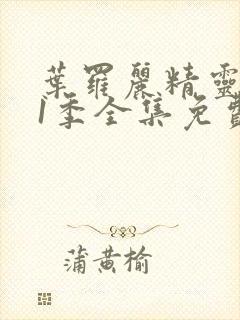 葉羅麗精靈
1季全集免費
蒲黄榆